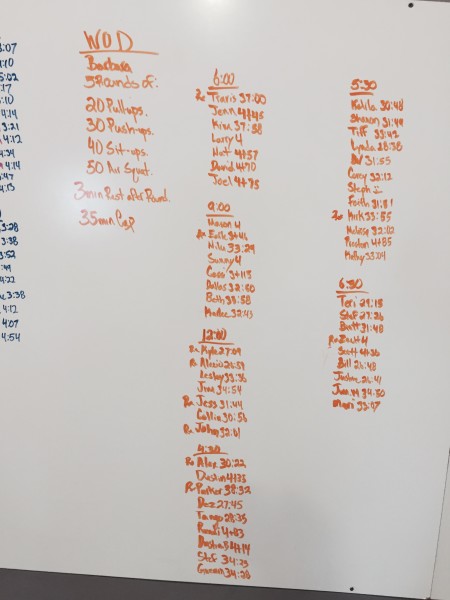 3:07
4:10
5:02
:17
5:10
4:14
3:21
4:12
4:34
4:14
:47
4:13
3:28
3:38
3:52
:49
4:22
3:38
4:12
4:07
4:54
WOD
Barbara
5 Rounds of:
20 Pullups.
30 Push-ups.
40 Sit-ups.
50 Air Squat.
3 min Rest after Round.
35 min Cap
6:00
Rx Travis 37:00
Jenn 4+45
Kim 37:38
Larry 4
Matt 4+57
David 4+70
Joel 4+95
9:00
4
Rx
Mike 33:29
Sunny 4
3+113
Dallas 32:50
Beth 38:58
32:43
12:00
Rx Kyle 27:09
Rx Alexis
Lesley 33:36
34:54
Rx Jess 31:44
Collin 30:56
Rx John 32:01
4:30
Rx Alex 30:22
Dustin 4+33
Rx Parker 38:32
Dez 27:45
Tango 28:35
4+83
4+14
Stef 34:23
34:28
5:30
Kalila 30:48
Sharon 31:49
Tiff 33:42
Lynda 28:38
31:55
Corey 32:12
Steph
Faith 31:51
Rx Kirk 33:55
Melissa 32:02
Preston 4+85
Kathy 33:04
6:30
Teri 29:15
Stef 27:26
Brett 31:48
Rx Brett 4
Scott 4+36
Bill 26:48
Justine 26:41
34:50
33:07